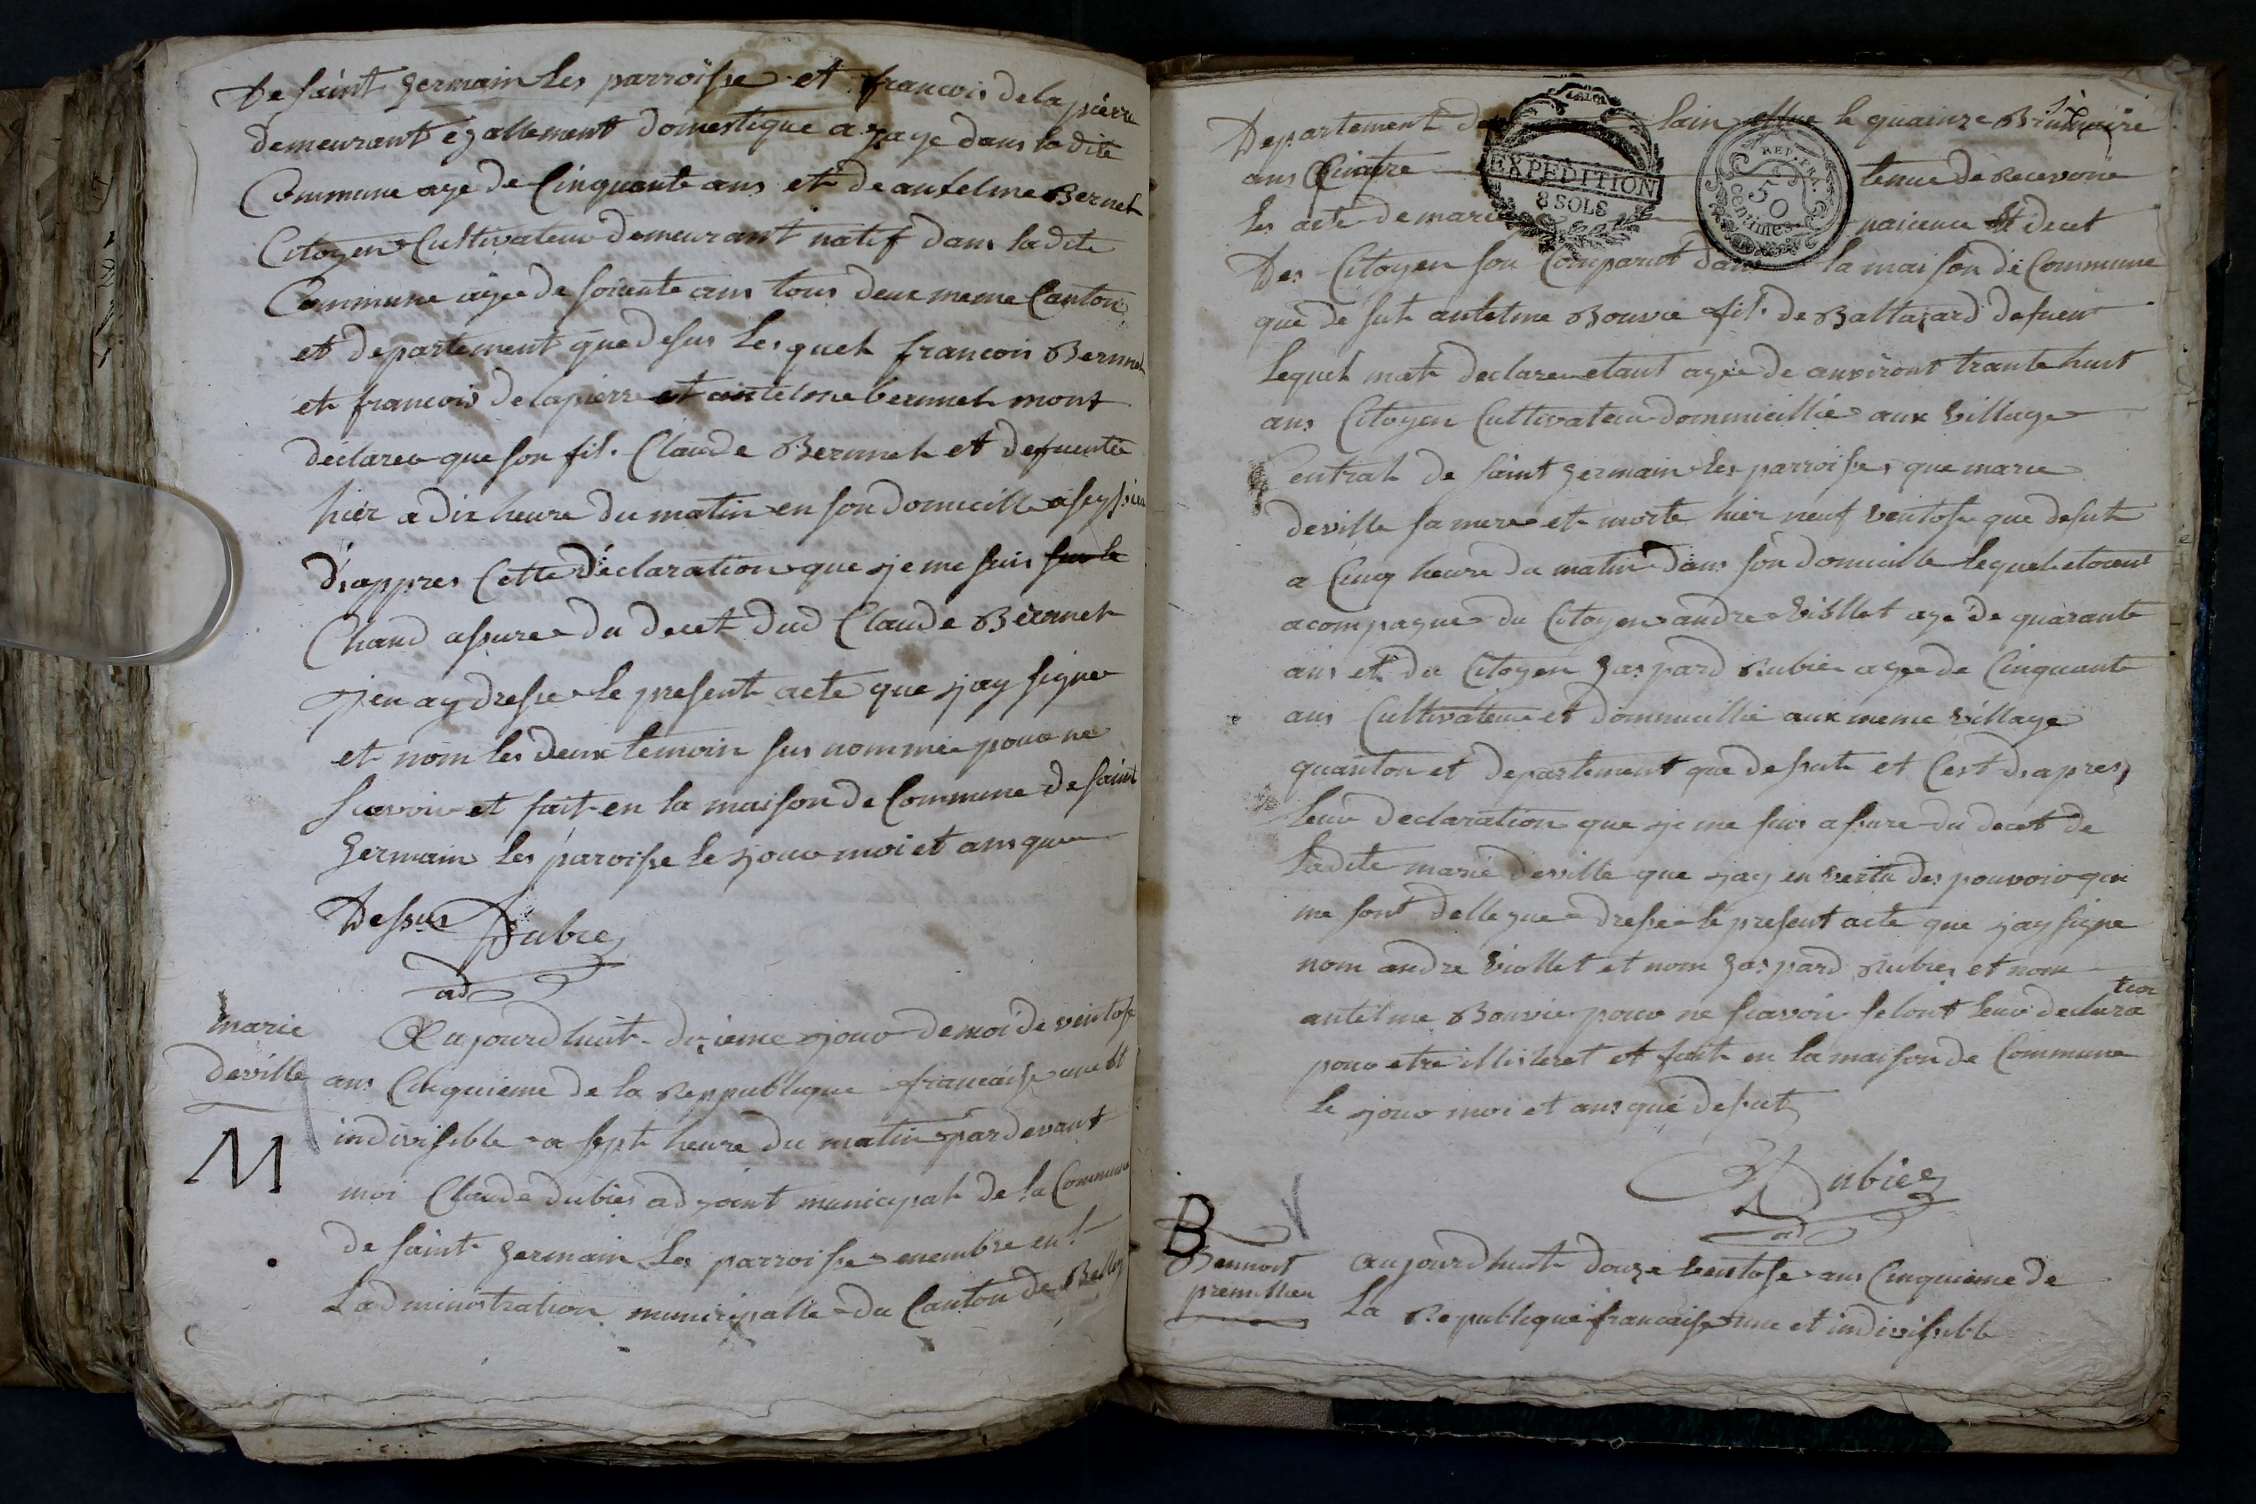 De saint germain les parroisse et francois delapierre
demeurant egallement domestique a gage dans la dite
Commune age de Cinquante ans et de antelme Bernet
Citoyen Cultivateur demeurant natif dans la dite
Commune agee de soixente ans tous deux meme Canton
et departement que desus les quel francois Bernnet
et francois delapierre et antelme bernnet mont
declaree que son fil. Claude Bernnet et defuentee
hier a dix heure du matin en son domicille a seyssieu
d'appres Cette declaration que je me suis sur le
Chand assure du decet dud Claude Bernnet
j'en ay dresse le present acte que jay signe
et nom les deux temoin sus nommee pour ne
scavoir et fait en la maison de Commune de saint
germain les paroisse le jour moi et ans que
Dessus Dubiez
ad
marie
deville
M
Aujourdhuit dixieme jour de moi de ventose
ans Cinquieme de la Reppublique francaise une et
indivisible a sept heure du matin pardevant
moi Claude dubiez adjoint municipal de la Commune
de saint germain les parroisse membre en
Ladministration municipalle du Canton de Belley
Departement de lain elue le quainze Brumaire
ans Quatre tenue de Recevoire
les acte de mari naicence et decet
Des Citoyen son Comparut dans la maison de Commune
que desut antelme Bouvie fil. de Baltazard defuent
lequel mat declaree etant agee de anviront trante huit
ans Citoyen Cultivateur dommicillie aux village
entrat de saint germain les parroisse que marie
deville sa mere et morte hier neuf ventose que desut
a Cinq heure du matin dans son domicille lequel etoient
acompagne du Citoyen andre viollet age de quarante
ans et du Citoyen gaspard Rubie agee de Cinquante
ans Cultivateur et dommicillie aux meme village
quanton et departement que desut et Cest d'apres
leur declaration que je me suis assure du decet de
ladite marie deville que jay en vertu des pouvoir qui
me sont dellegue dresse le present acte que jay signe
nom andre viollet et nom gaspard Rubiez et nom
antelme Bouvie pour ne scavoir selont leur declara
tion
pour etre illisteret et fait en la maison de Commune
le jour moi et ans que desut
Dubiez
ad
B
Bennoit
premillieu
aujourdhuit douze ventose ans Cinquieme de
La Republique francaise une et indivisible
EXPEDITION
8 SOLS
REP. FRA.
50
centimes